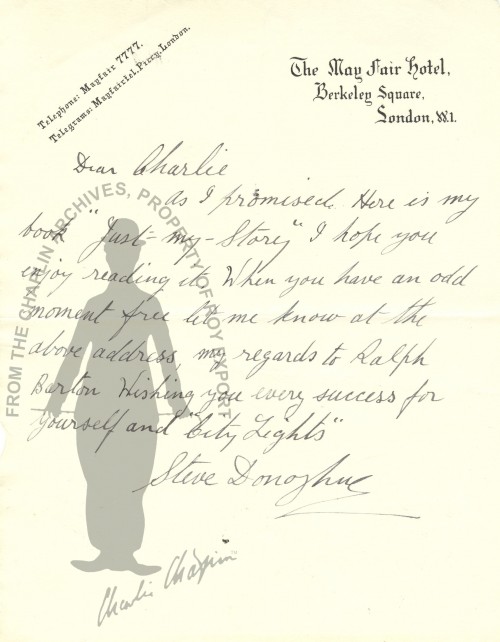 Telephone: Mayfair 7777.
Telegrams: Mayfairtel, Piccy, London.
The May Fair Hotel,
Berkeley Square,
London, W.1.
Dear Charlie
As I promised. Here is my
book "Just-my-Story" I hope you
enjoy reading it. When you have an odd
moment free let me know at the
above address, my regards to Ralph
Barton Wishing you every success for
yourself and "City Lights"
Steve Donoghue
FROM THE CHAPLIN ARCHIVES, PROPERTY OF ROY EXPORT
Charlie Chaplin